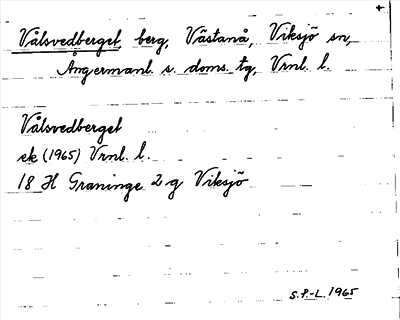 Vålsvedberget, berg, Västanå, Viksjö sn,
Ångermanl. s. doms. tg, Vrnl. l.
Vålsvedberget
ek (1965) Vrnl. l.
18 H Graninge 2 g Viksjö
S.P.-L. 1965